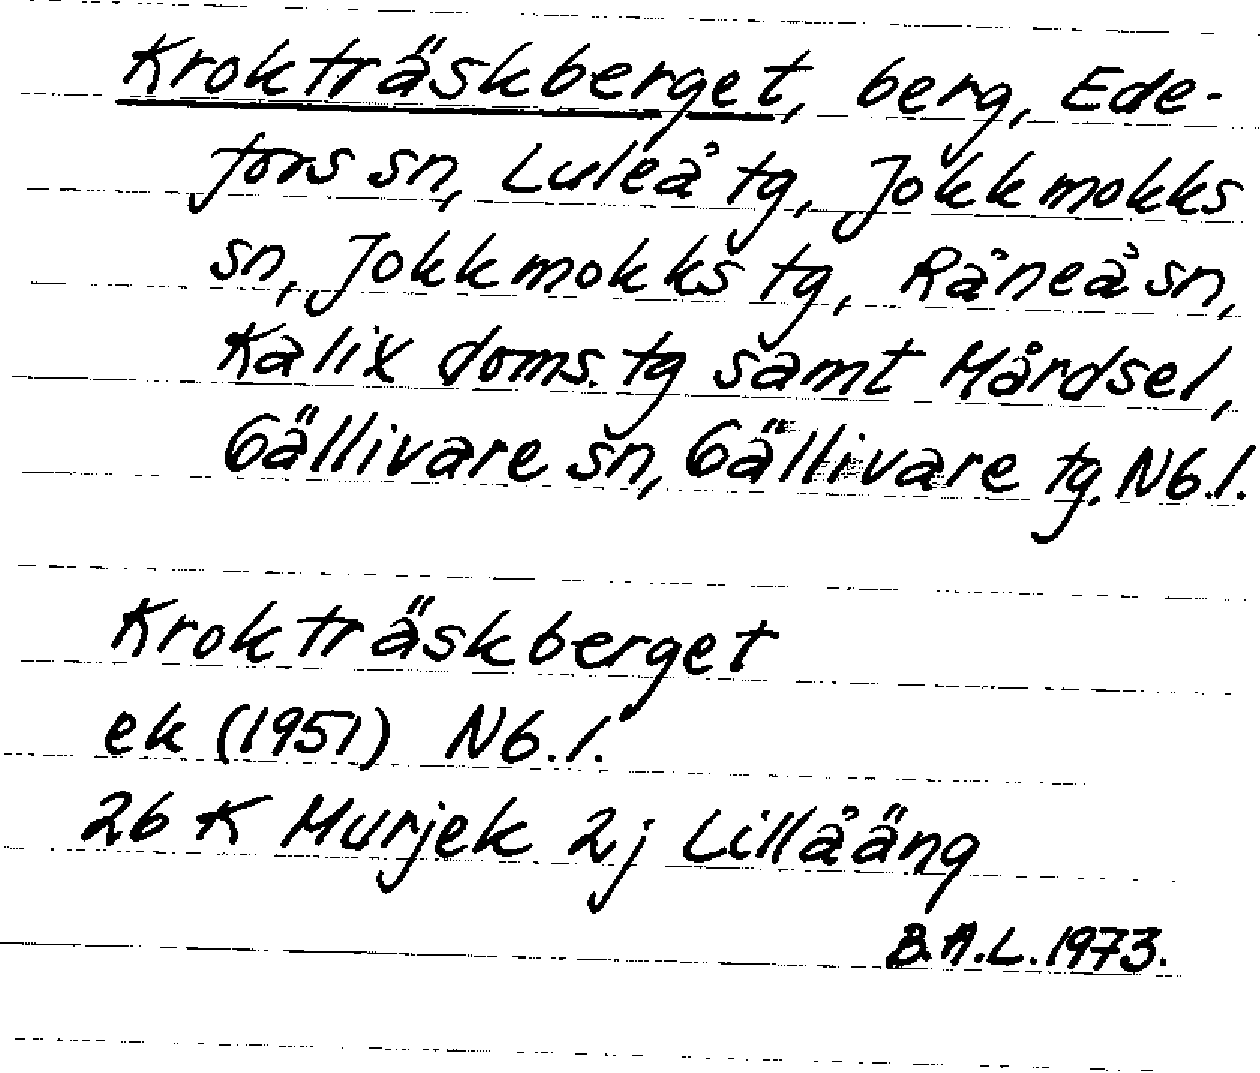 Krokträskberget, berg, Ede-
fors sn, Luleå tg, Jokkmokks
sn, Jokkmokks tg, Råneå sn,
Kalix doms. tg samt Mårdsel,
Gällivare sn, Gällivare tg. Nb.l.
Krokträskberget
ek (1951) Nb.l.
26 K Murjek 2j Lillåäng
B.A.L. 1973.